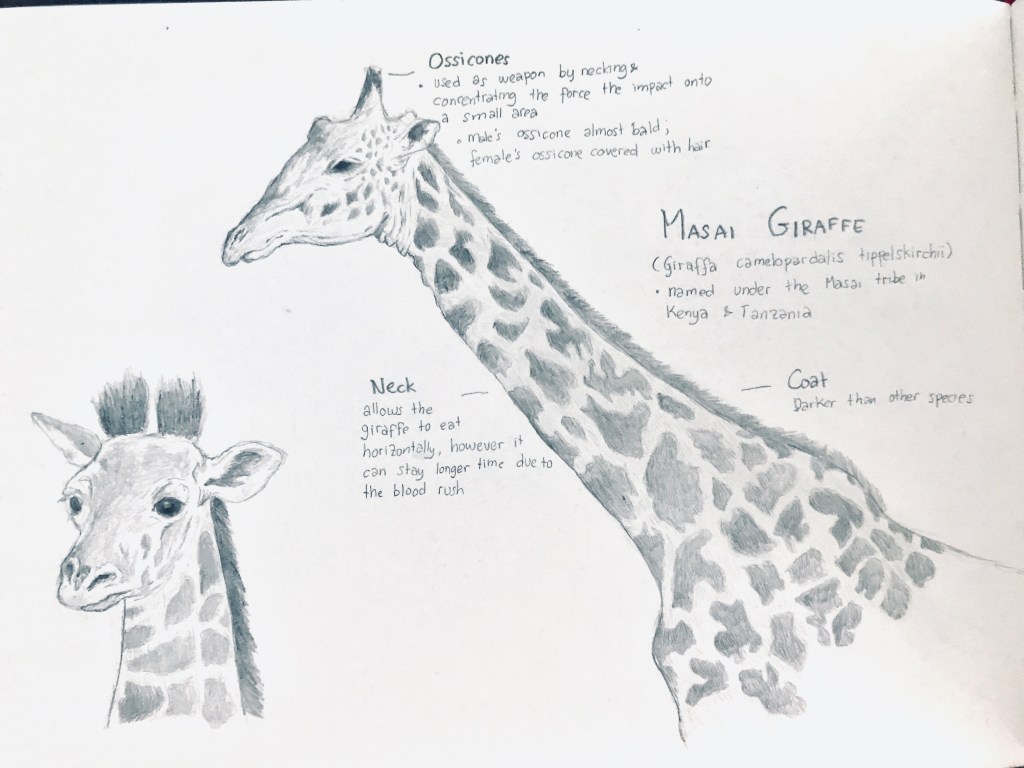 Ossicones
• used as weapon by necking &
concentrating the force the impact onto
a small area
• male's ossicone almost bald;
female's ossicone covered with hair
MASAI GIRAFFE
(Giraffa camelopardalis tippelskirchii)
• named under the Masai tribe in
Kenya & Tanzania
Neck
allows the
giraffe to eat
horizontally, however it
can stay longer time due to
the blood rush
Coat
Darker than other species